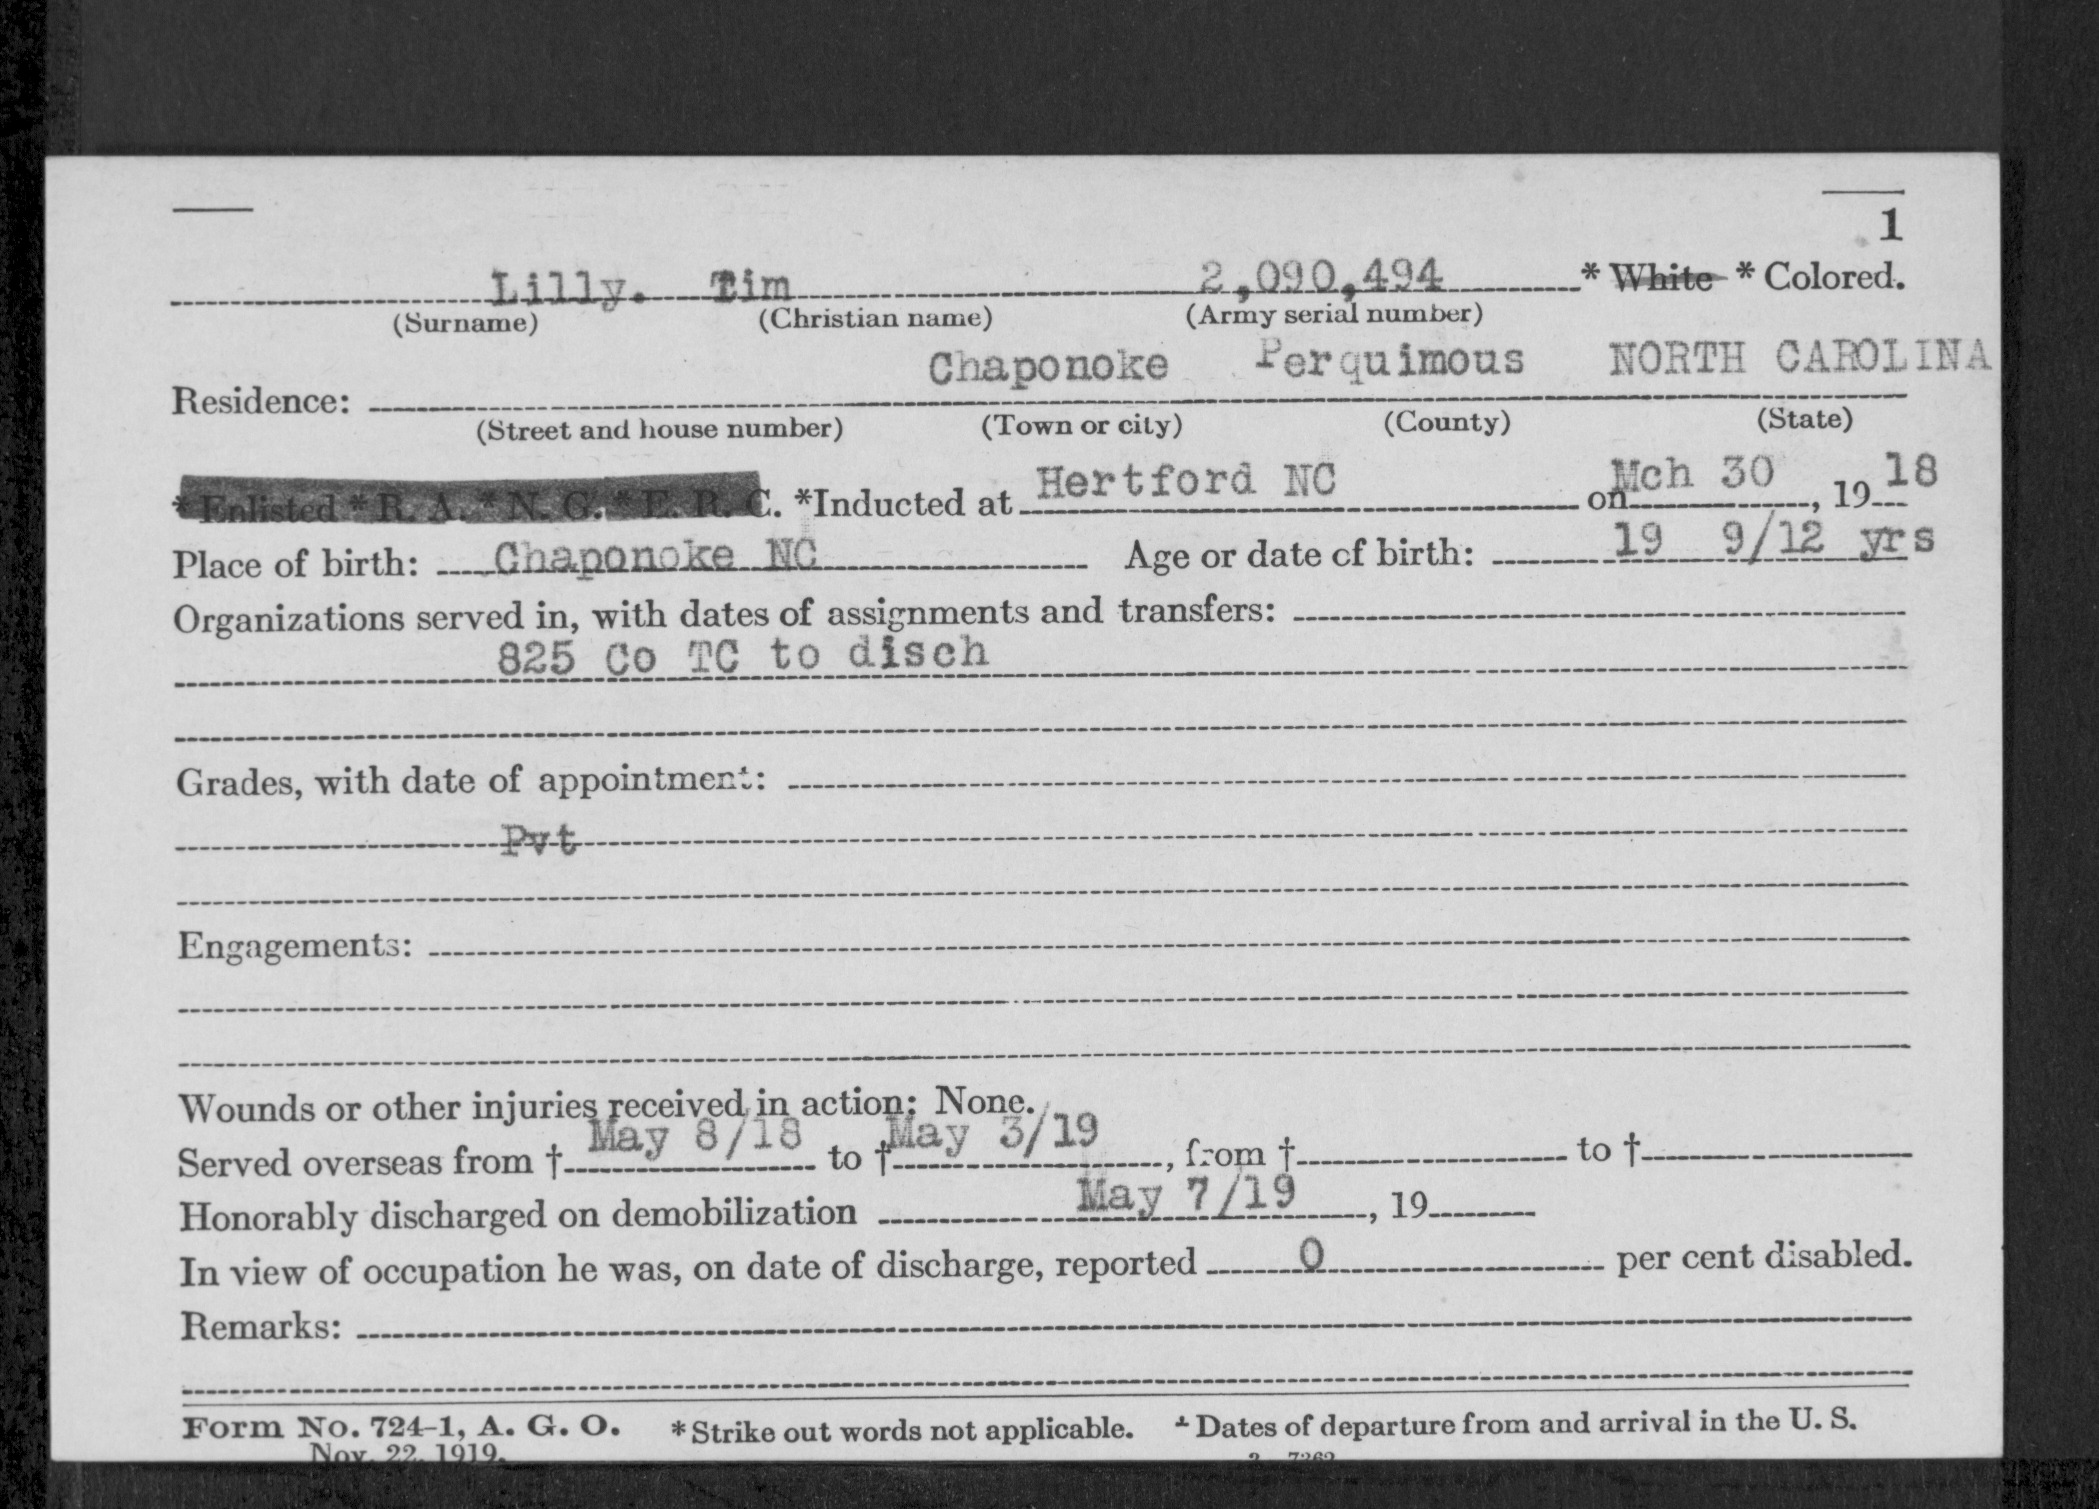 1
Lilly. Tim 2,090,494 * White * Colored.
(Surname) (Christian name) (Army serial number)
Chaponoke Perquimous NORTH CAROLINA
Residence:
(Street and house number) (Town or city) (County) (State)
* Enlisted * R. A. * N. G. * E. R. C. *Inducted at Hertford NC on Mch 30, 1918
Place of birth: Chaponoke NC Age or date of birth: 19 9/12 yrs
Organizations served in, with dates of assignments and transfers:
825 Co TC to disch
Grades, with date of appointment:
Pvt
Engagements:
Wounds or other injuries received in action: None.
Served overseas from † May 8/18 to † May 3/19, from † to †
Honorably discharged on demobilization May 7/19, 19
In view of occupation he was, on date of discharge, reported 0 per cent disabled.
Remarks:
Form No. 724-1, A. G. O. * Strike out words not applicable. † Dates of departure from and arrival in the U. S.
Nov. 22, 1919.